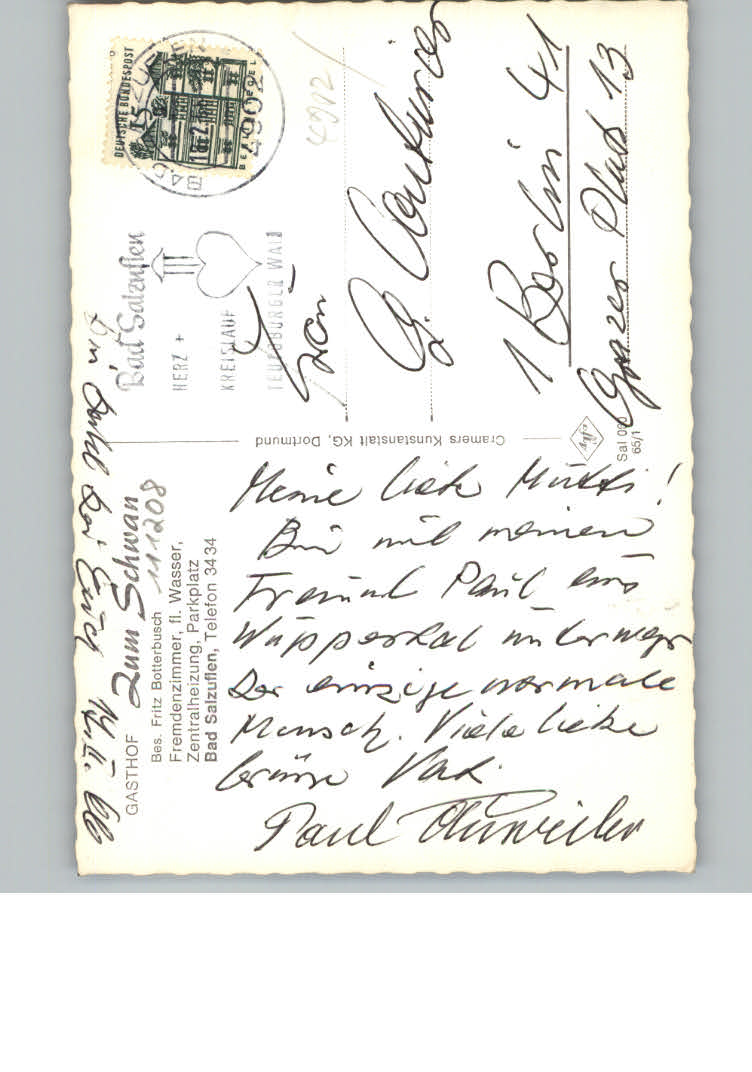 GASTHOF Zum Schwan
Bes. Fritz Botterbusch 111208
Fremdenzimmer, fl. Wasser,
Zentralheizung, Parkplatz
Bad Salzuflen, Telefon 3434
66
Meine liebe Mutti!
Bin mit meinem
Freund Paul aus
Wuppertal unterwegs
Der einzige normale
Mensch. Viele liebe
Grüsse
Paul
Cramers Kunstanstalt KG, Dortmund
Sal 060
65/1
DEUTSCHE BUNDESPOST
4902
BAD
Bad Salzuflen
HERZ +
KREISLAUF
TEUTOBURGER WALD
4902
Frau
G.
1 Berlin 41
Grazer Platz 13